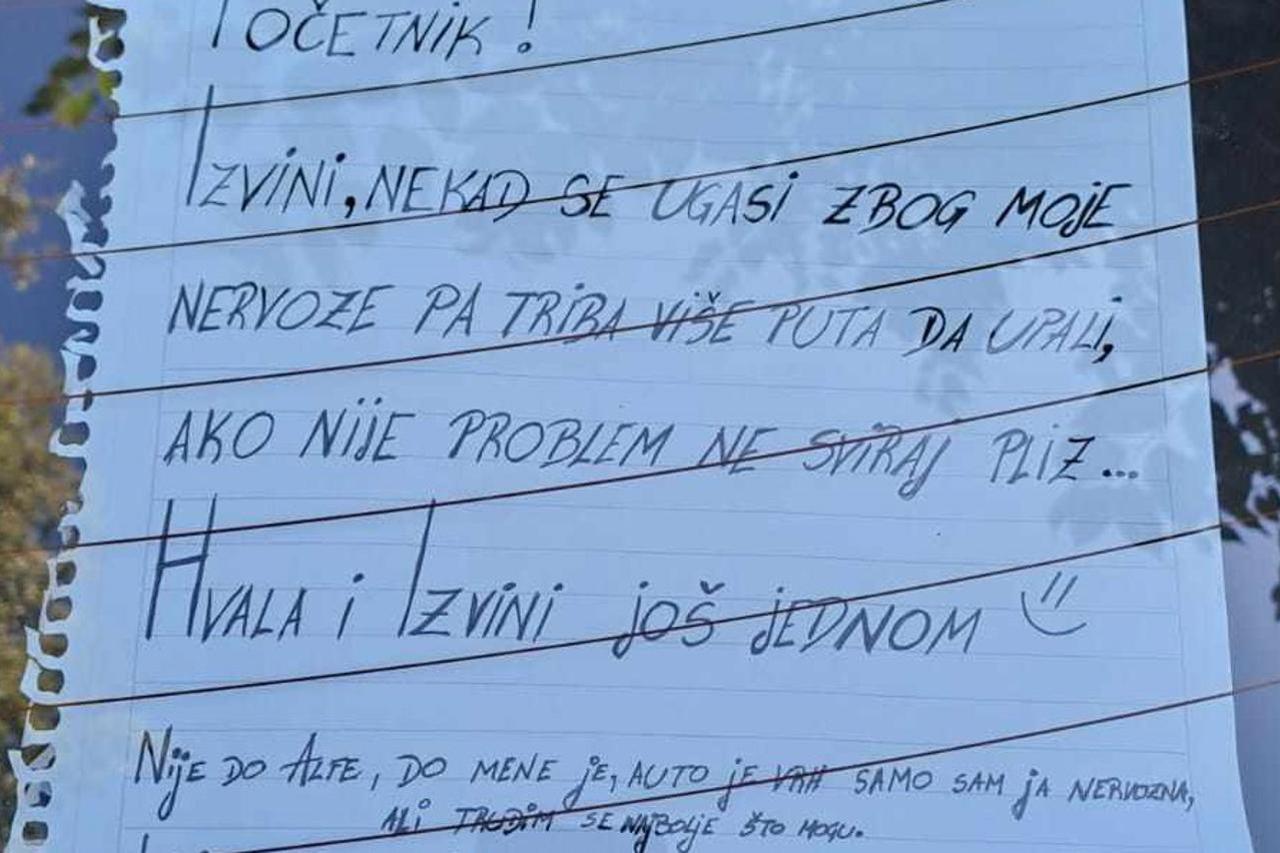 POČETNIK!
IZVINI, NEKAD SE UGASI ZBOG MOJE
NERVOZE PA TRIBA VIŠE PUTA DA UPALI,
AKO NIJE PROBLEM NE SVIRAJ PLIZ...
HVALA I IZVINI JOŠ JEDNOM
NIJE DO ALFE, DO MENE JE, AUTO JE VRH SAMO SAM JA NERVOZNA,
ALI TRUDIM SE NAJBOLJE ŠTO MOGU.